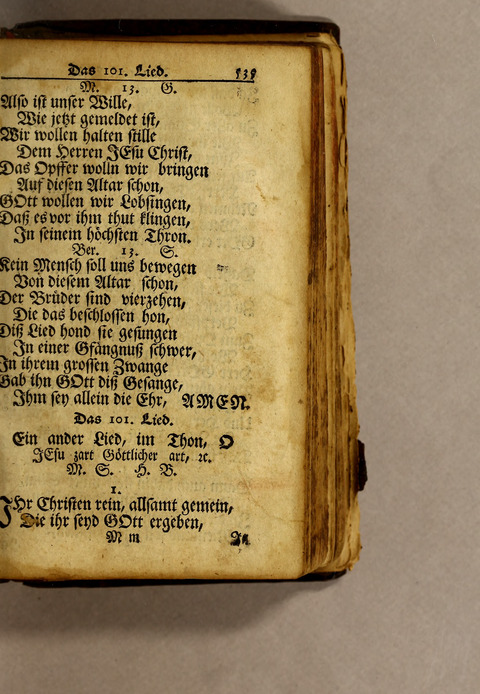 Das 101. Lied. 539
M. 13. G.
Also ist unser Wille,
Wie jetzt gemeldet ist,
Wir wollen halten stille
Dem Herren JEsu Christ,
Das Opffer wolln wir bringen
Auf diesen Altar schon,
GOtt wollen wir Lobsingen,
Daß es vor ihm thut klingen,
In seinem höchsten Thron.
Ber. 13. S.
Kein Mensch soll uns bewegen
Von diesem Altar schon,
Der Brüder sind vierzehen,
Die das beschlossen hon,
Diß Lied hond sie gesungen
In einer Gfängnuß schwer,
In ihrem grossen Zwange
Gab ihn GOtt diß Gesange,
Ihm sey allein die Ehr, AMEN.
Das 101. Lied.
Ein ander Lied, im Thon, O
JEsu zart Göttlicher art, ꝛc.
M. S. H. B.
1.
IHr Christen rein, allsamt gemein,
Die ihr seyd GOtt ergeben,
M m